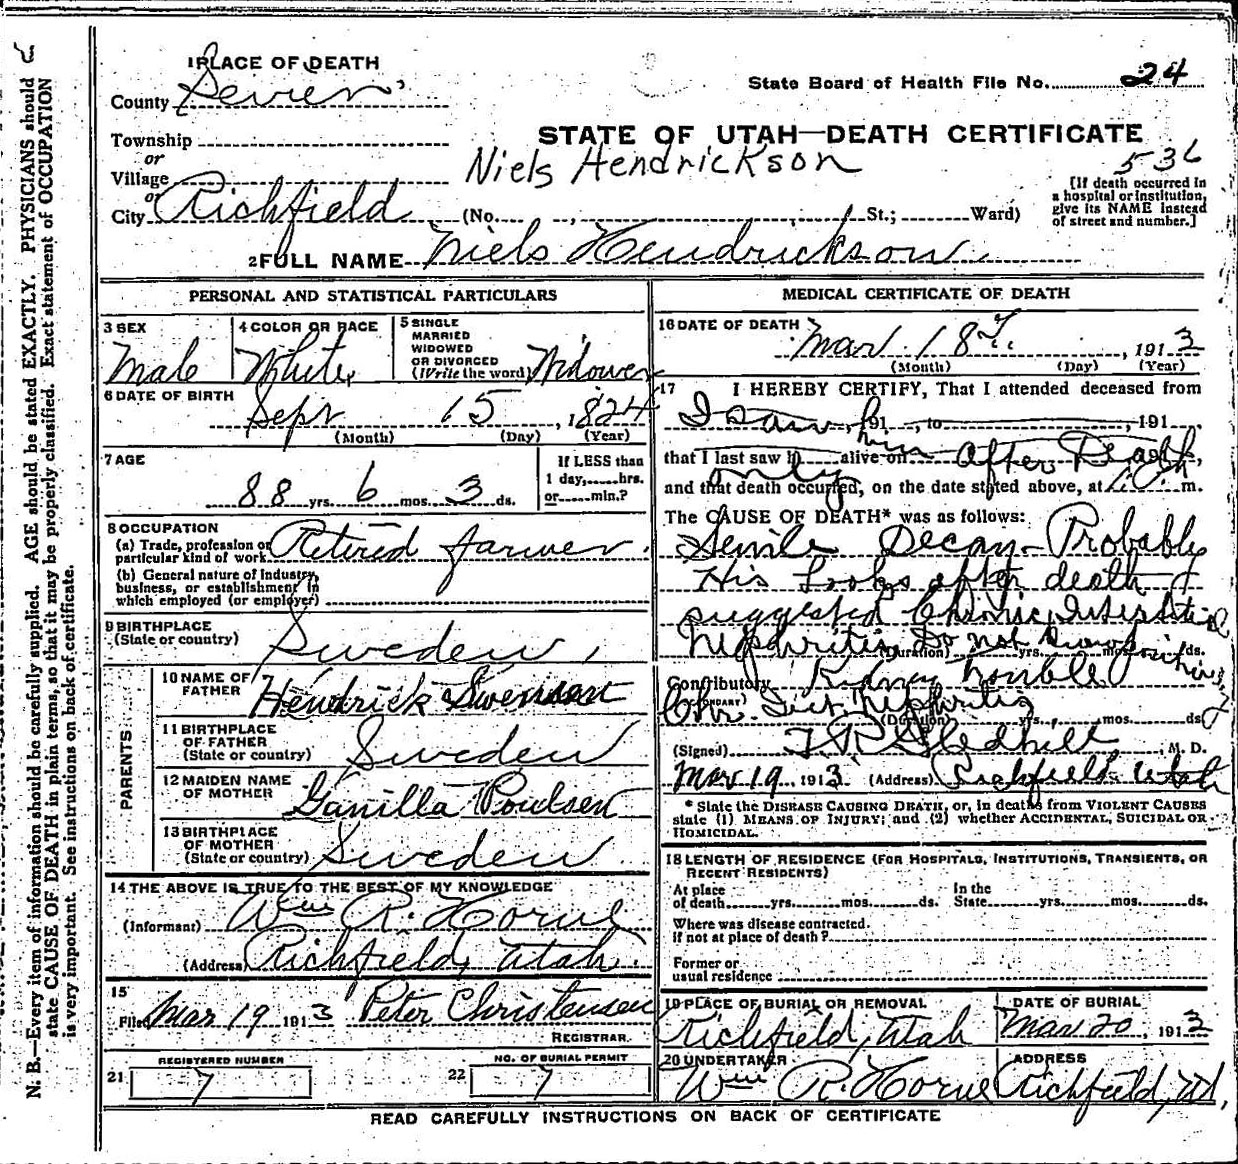 N. B.—Every item of information should be carefully supplied. AGE should be stated EXACTLY. PHYSICIANS should
state CAUSE OF DEATH in plain terms, so that it may be properly classified. Exact statement of OCCUPATION
is very important. See instructions on back of certificate.
1 PLACE OF DEATH
County Sevier
State Board of Health File No. 24
Township
or
Village
or
City Richfield (No. , St.; Ward)
STATE OF UTAH—DEATH CERTIFICATE
Niels Hendrickson
536
[If death occurred in
a hospital or institution,
give its NAME instead
of street and number.]
2 FULL NAME Niels Hendrickson
PERSONAL AND STATISTICAL PARTICULARS
3 SEX
Male
4 COLOR OR RACE
White
5 SINGLE
MARRIED
WIDOWED
OR DIVORCED
(Write the word) Widower
6 DATE OF BIRTH
Sept 15, 1824
(Month) (Day) (Year)
7 AGE
88 yrs. 6 mos. 3 ds.
If LESS than
1 day, hrs.
or min.?
8 OCCUPATION
(a) Trade, profession or
particular kind of work Retired farmer
(b) General nature of Industry,
business, or establishment in
which employed (or employer)
9 BIRTHPLACE
(State or country) Sweden
PARENTS
10 NAME OF
FATHER Hendrick Swensen
11 BIRTHPLACE
OF FATHER
(State or country) Sweden
12 MAIDEN NAME
OF MOTHER Ganilla Poulsen
13 BIRTHPLACE
OF MOTHER
(State or country) Sweden
14 THE ABOVE IS TRUE TO THE BEST OF MY KNOWLEDGE
(Informant) Wm R. Horne
(Address) Richfield, Utah.
15
Filed Mar 19 1913 Peter Christensen
REGISTRAR.
REGISTERED NUMBER
21 7
NO. OF BURIAL PERMIT
22 7
MEDICAL CERTIFICATE OF DEATH
16 DATE OF DEATH
Mar. 18, 1913
(Month) (Day) (Year)
17 I HEREBY CERTIFY, That I attended deceased from
I saw him, 191 , to , 191
that I last saw h alive on after Death,
only
and that death occurred, on the date stated above, at m.
The CAUSE OF DEATH* was as follows:
Senile Decay - Probably
His Looks after death
suggested Chronic Interstitial
Nephritis Do not know
(Duration) yrs. mos. ds.
Contributory Kidney trouble
(SECONDARY)
Chr. Int. Nephritis
(Duration) yrs. mos. ds.
(Signed) T R Gledhill, M. D.
Mar 19, 1913 (Address) Richfield Utah
* State the DISEASE CAUSING DEATH, or, in deaths from VIOLENT CAUSES
state (1) MEANS OF INJURY; and (2) whether ACCIDENTAL, SUICIDAL OR
HOMICIDAL.
18 LENGTH OF RESIDENCE (FOR HOSPITALS, INSTITUTIONS, TRANSIENTS, OR
RECENT RESIDENTS)
At place
of death yrs. mos. ds.
In the
State yrs. mos. ds.
Where was disease contracted.
if not at place of death?
Former or
usual residence
19 PLACE OF BURIAL OR REMOVAL
Richfield, Utah
DATE OF BURIAL
Mar 20, 1913
20 UNDERTAKER
Wm R. Horne
ADDRESS
Richfield, Ut,
READ CAREFULLY INSTRUCTIONS ON BACK OF CERTIFICATE